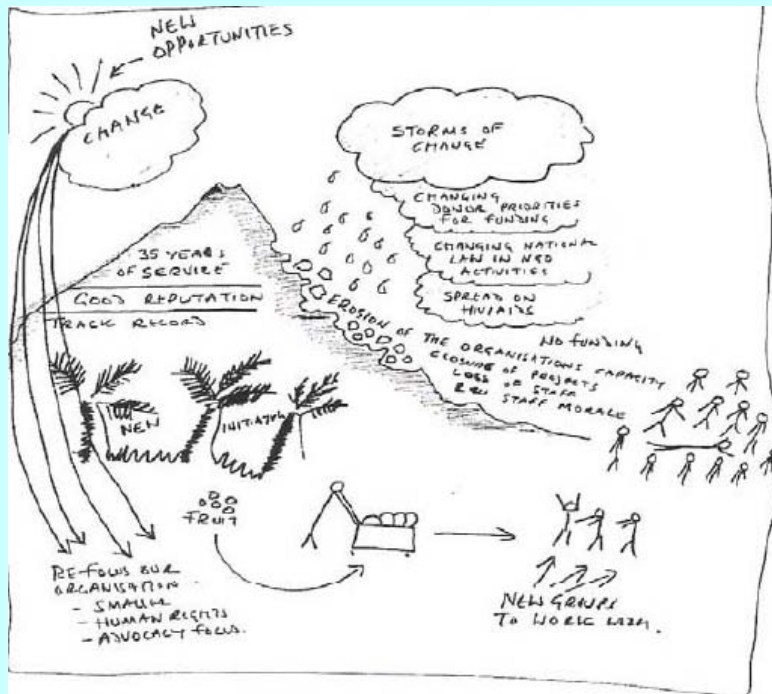 NEW
OPPORTUNITIES
CHANGE
STORMS OF
CHANGE
CHANGING
DONOR PRIORITIES
FOR FUNDING
CHANGING NATIONAL
LAW IN NGO
ACTIVITIES
SPREAD ON
HIV/AIDS
35 YEARS
OF SERVICE
GOOD REPUTATION
TRACK RECORD
EROSION OF THE ORGANISATIONS CAPACITY
CLOSURE OF PROJECTS
LOSS OF STAFF
STAFF MORALE
NO FUNDING
NEW
FRUIT
RE-FOCUS OUR
ORGANISATION
- SMALLER
- HUMAN RIGHTS
- ADVOCACY FOCUS.
NEW GROUPS
TO WORK WITH.